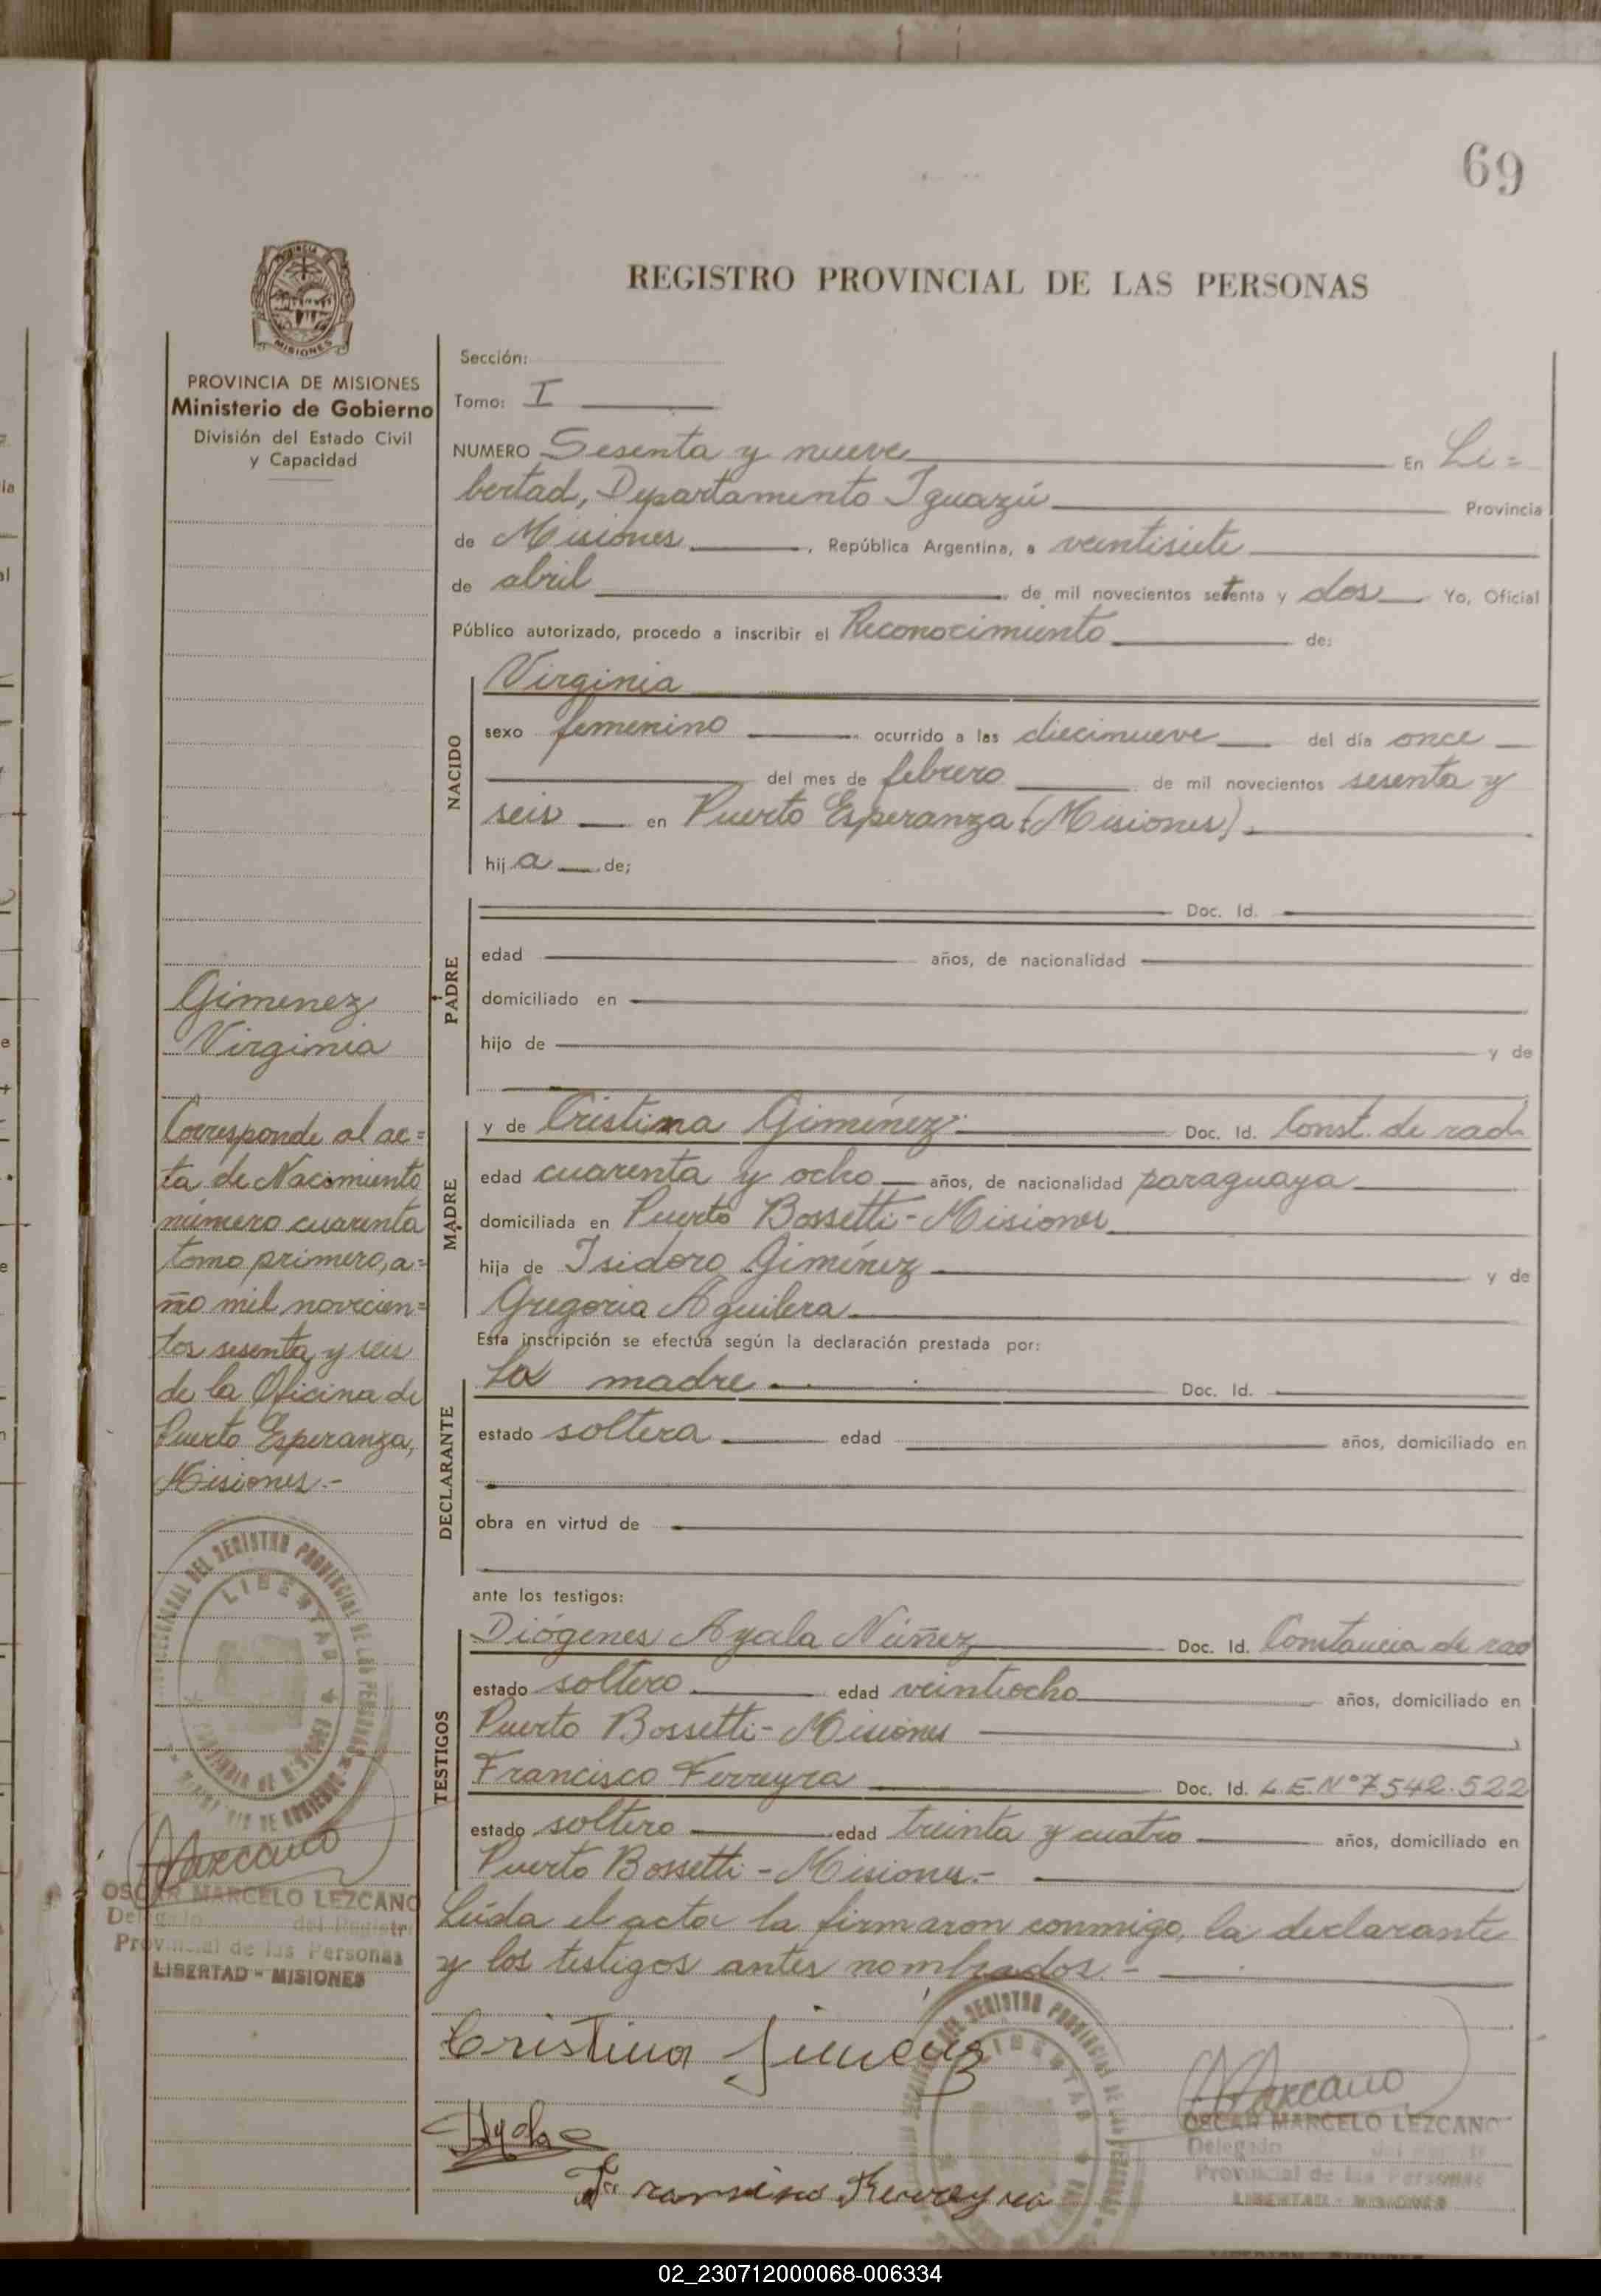 69
PROVINCIA
MISIONES
REGISTRO PROVINCIAL DE LAS PERSONAS
PROVINCIA DE MISIONES
Ministerio de Gobierno
División del Estado Civil
y Capacidad
Gimenez
Virginia
Corresponde al ac=
ta de Nacimiento
número cuarenta
tomo primero, a=
ño mil novecien=
tos sesenta y seis
de la Oficina de
Puerto Esperanza,
Misiones.-
LIBERTAD
OSCAR MARCELO LEZCANO
Delegado del Registr
Provincial de las Personas
LIBERTAD - MISIONES
Sección:
Tomo: I
NUMERO Sesenta y nueve En Li=
bertad, Departamento Iguazú Provincia
de Misiones, República Argentina, a veintisiete
de abril de mil novecientos setenta y dos Yo, Oficial
Público autorizado, procedo a inscribir el Reconocimiento de:
NACIDO
Virginia
sexo femenino ocurrido a las diecinueve del día once
del mes de febrero de mil novecientos sesenta y
seis en Puerto Esperanza (Misiones).
hija de;
PADRE
Doc. Id.
edad años, de nacionalidad
domiciliado en
hijo de y de
MADRE
y de Cristina Giménez.- Doc. Id. Const. de rad.
edad cuarenta y ocho años, de nacionalidad paraguaya
domiciliada en Puerto Bossetti - Misiones
hija de Isidoro Giménez y de
Gregoria Aguilera.
Esta inscripción se efectúa según la declaración prestada por:
DECLARANTE
La madre.- Doc. Id.
estado soltera edad años, domiciliado en
obra en virtud de
ante los testigos:
TESTIGOS
Diógenes Ayala Núñez Doc. Id. Constancia de rad
estado soltero edad veintiocho años, domiciliado en
Puerto Bossetti - Misiones
Francisco Ferreyra Doc. Id. L.E. Nº 7.542.522
estado soltero edad treinta y cuatro años, domiciliado en
Puerto Bossetti - Misiones.-
Leída el acta la firmaron conmigo, la declarante
y los testigos antes nombrados.-
Cristina Jimenez
Ayala
Francisco Ferreyra
OSCAR MARCELO LEZCANO
Delegado del
Provincial de las Personas
LIBERTAD - MISIONES
02_230712000068-006334